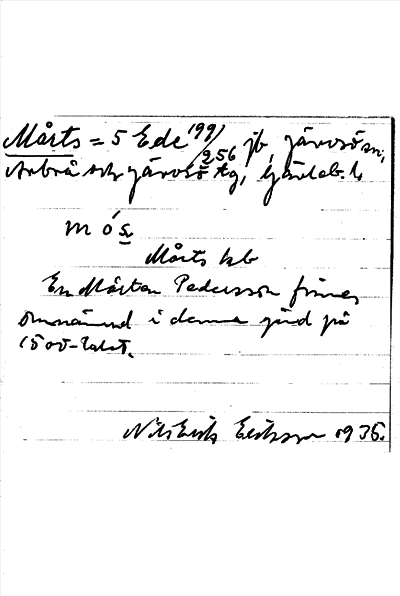 Mårts = 5 Ede 199/256 jb, Järvsö sn,
Arbrå och Järvsö tg, Gävleb. l.
m ó s
Mårts hb
En Mårten Pedersson finnes
omnämnd i denna gård på
1500-talet.
Nils Erik Eriksson 1935.